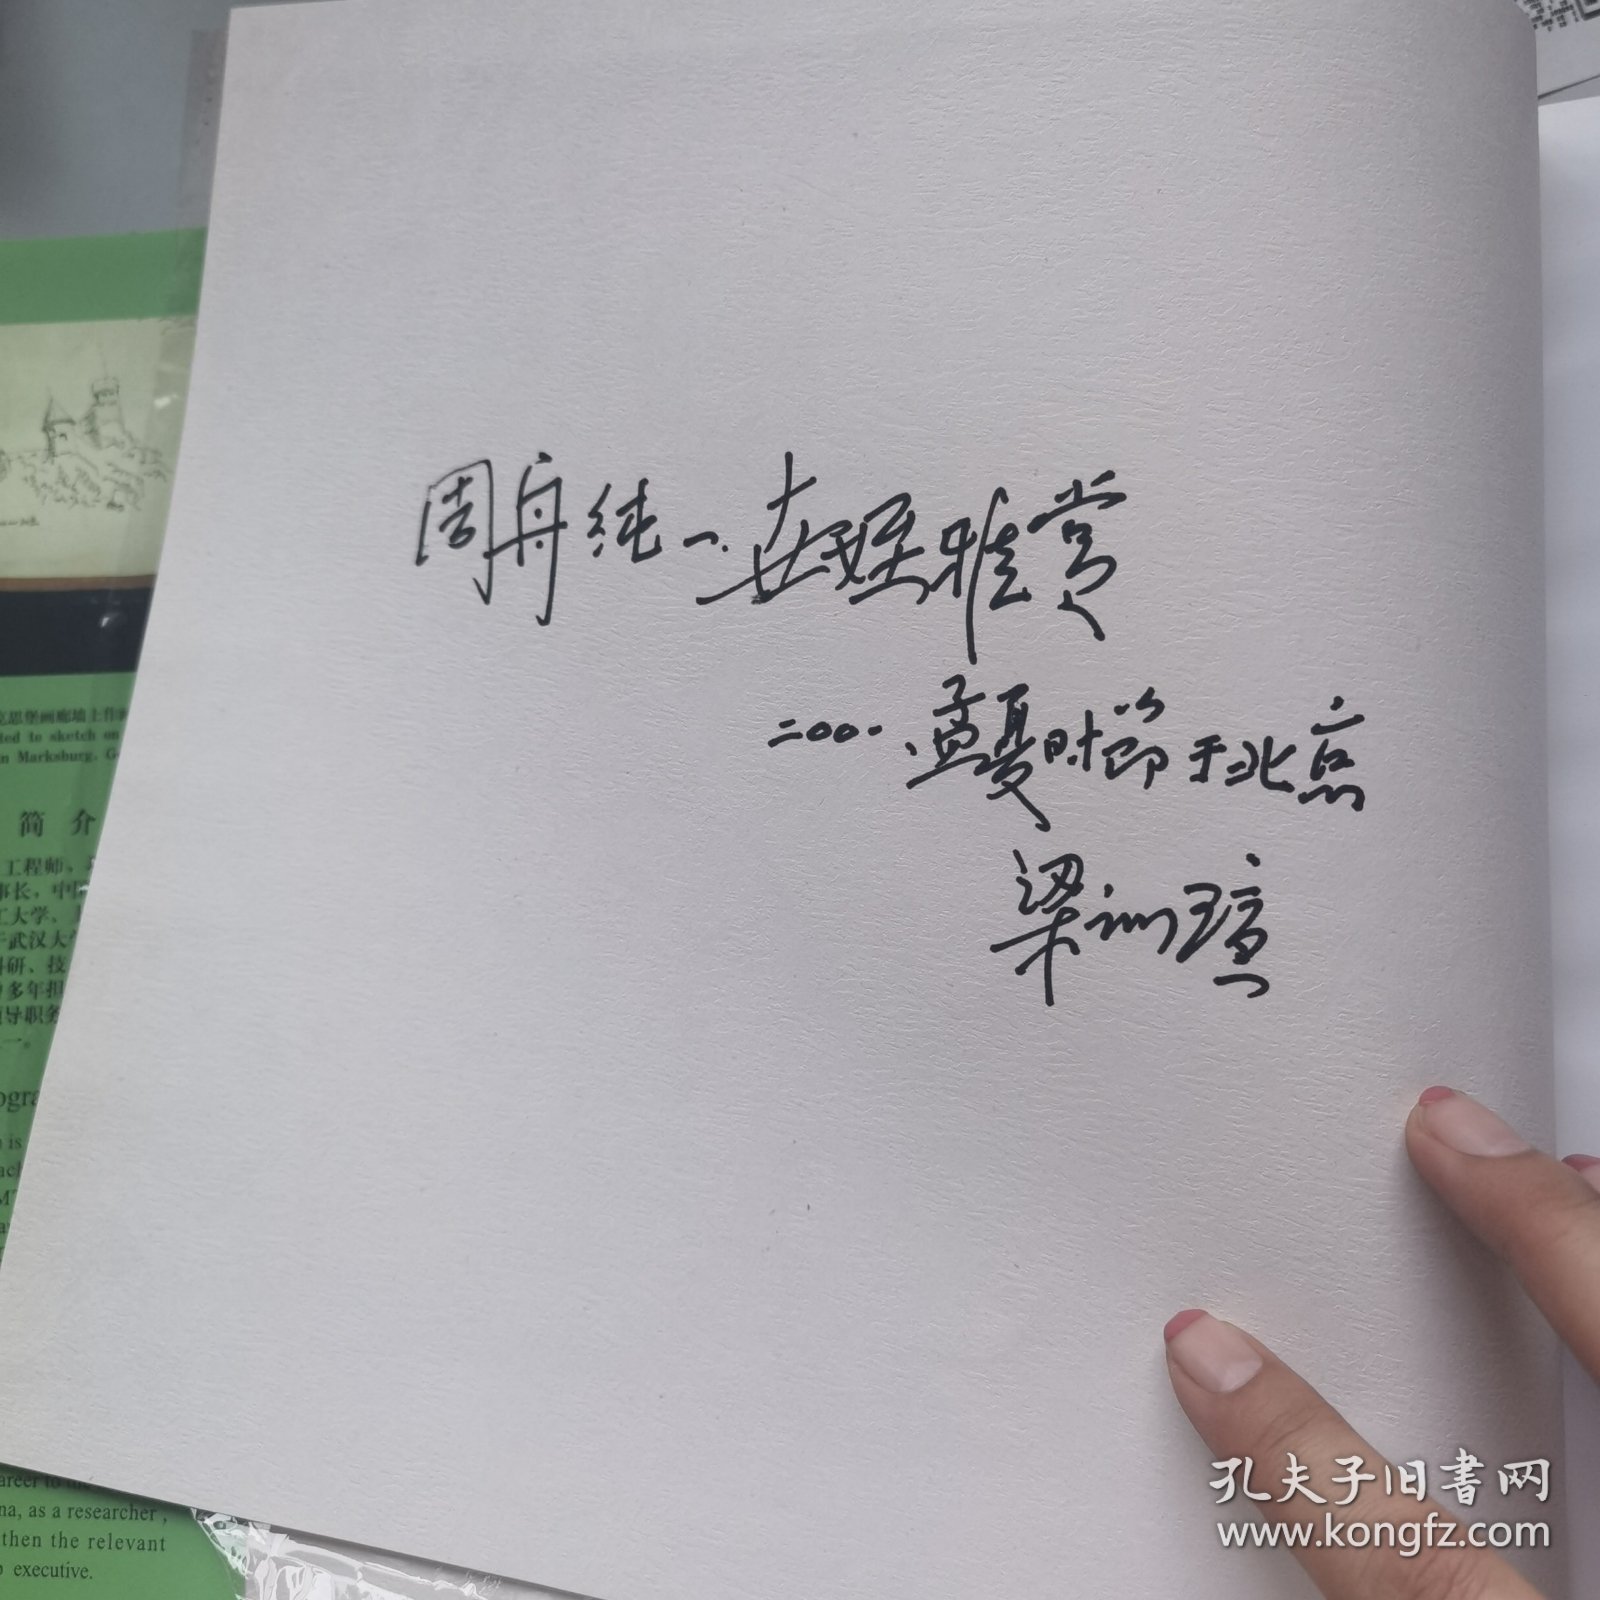 克思堡画廊墙上作画
ted to sketch on
n Marksburg. G
简 介
工程师、
事长,中国
工大学、
于武汉大学
科研、技
多年担
领导职务
一。
ogra
is
career to
na, as a researcher,
then the relevant
executive.
周舟纯一
雅赏
二〇〇〇.孟夏时节于北京
梁训瑄
孔夫子旧书网
www.kongfz.com